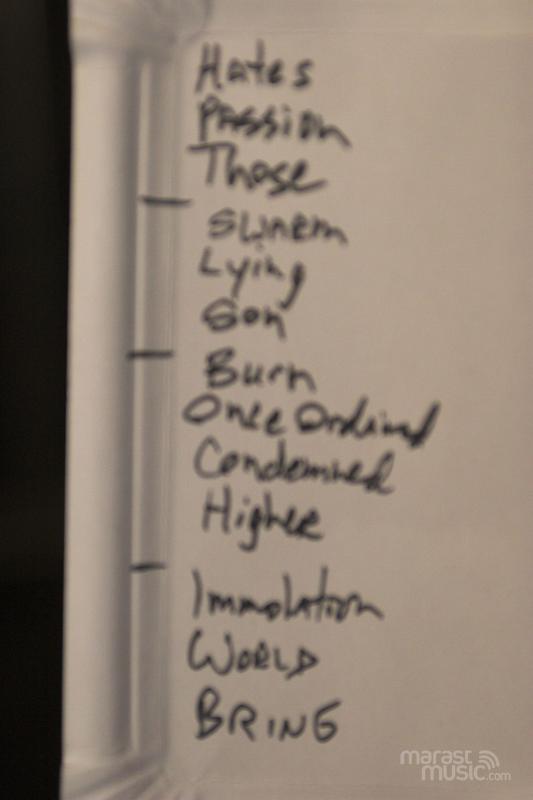 Hates
Passion
Those
Sinem
Lying
Son
Burn
Once Ordained
Condemned
Higher
Immolation
World
BRING
marast
music.com